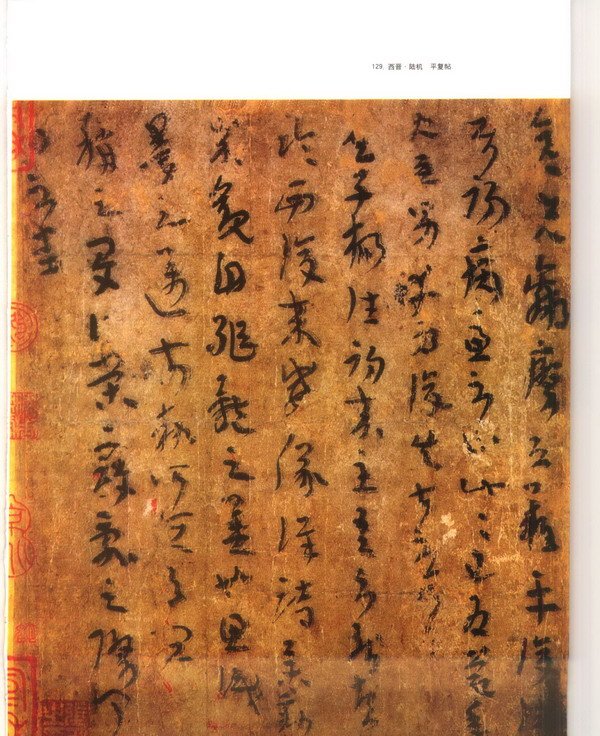 129. 西晋·陆机 平复帖
彦先羸瘵恐難平復
病慮不止此此已為慶承
使唯男幸為復失前憂耳
子楊往初來主吾不能盡
臨西復來威儀詳跱舉動
成觀自軀體之美也思識
量之邁前執所恒有宜
稱之夏伯榮寇亂之際聞
問不悉